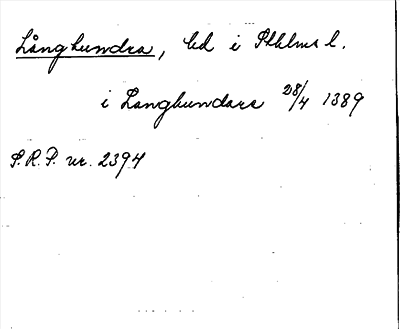 Långhundra, hd i Sthlms l.
i Langhundare 28/4 1389
S.R.P. nr. 2394